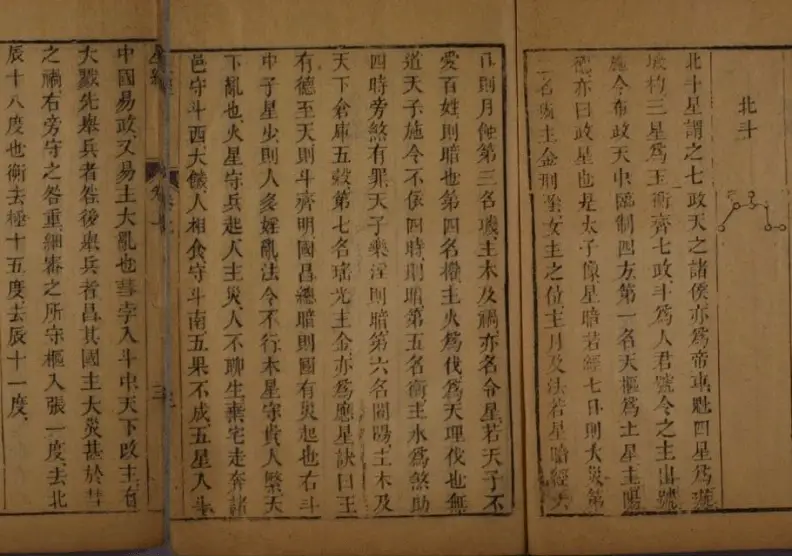 北斗
北斗星謂之七政天之諸侯亦為帝車魁四星為璇
璣杓三星為玉衡齊七政斗為人君號令之主出號
施令布政天中臨制四方第一名天樞為土星主陽
德亦曰政星也是太子像星暗若經七日則大災第
二名璇主金刑陰女主之位主月及法若星暗經六
日則月蝕第三名璣主木及禍亦名令星若天子不
愛百姓則暗也第四名權主火為伐為天理伐也無
道天子施令不依四時則暗第五名衡主水為煞助
四時旁煞有罪天子樂淫則暗第六名闓陽主木及
天下倉庫五穀第七名瑤光主金亦為應星訣曰王
有德至天則斗齊明國昌總暗則國有災起也右斗
中子星少則人多婬亂法令不行木星守貴人繫天
下亂也火星守兵起人主災人不聊生棄宅走奔諸
邑守斗西大饑人相食守斗南五果不成五星入斗
星經
三
中國易政又易主大亂也彗孛入斗中天下改主有
大戮先舉兵者咎後舉兵者昌其國主大災甚於彗
之禍右旁守之咎重細審之所守樞入張一度去北
辰十八度也衡去極十五度去辰十一度